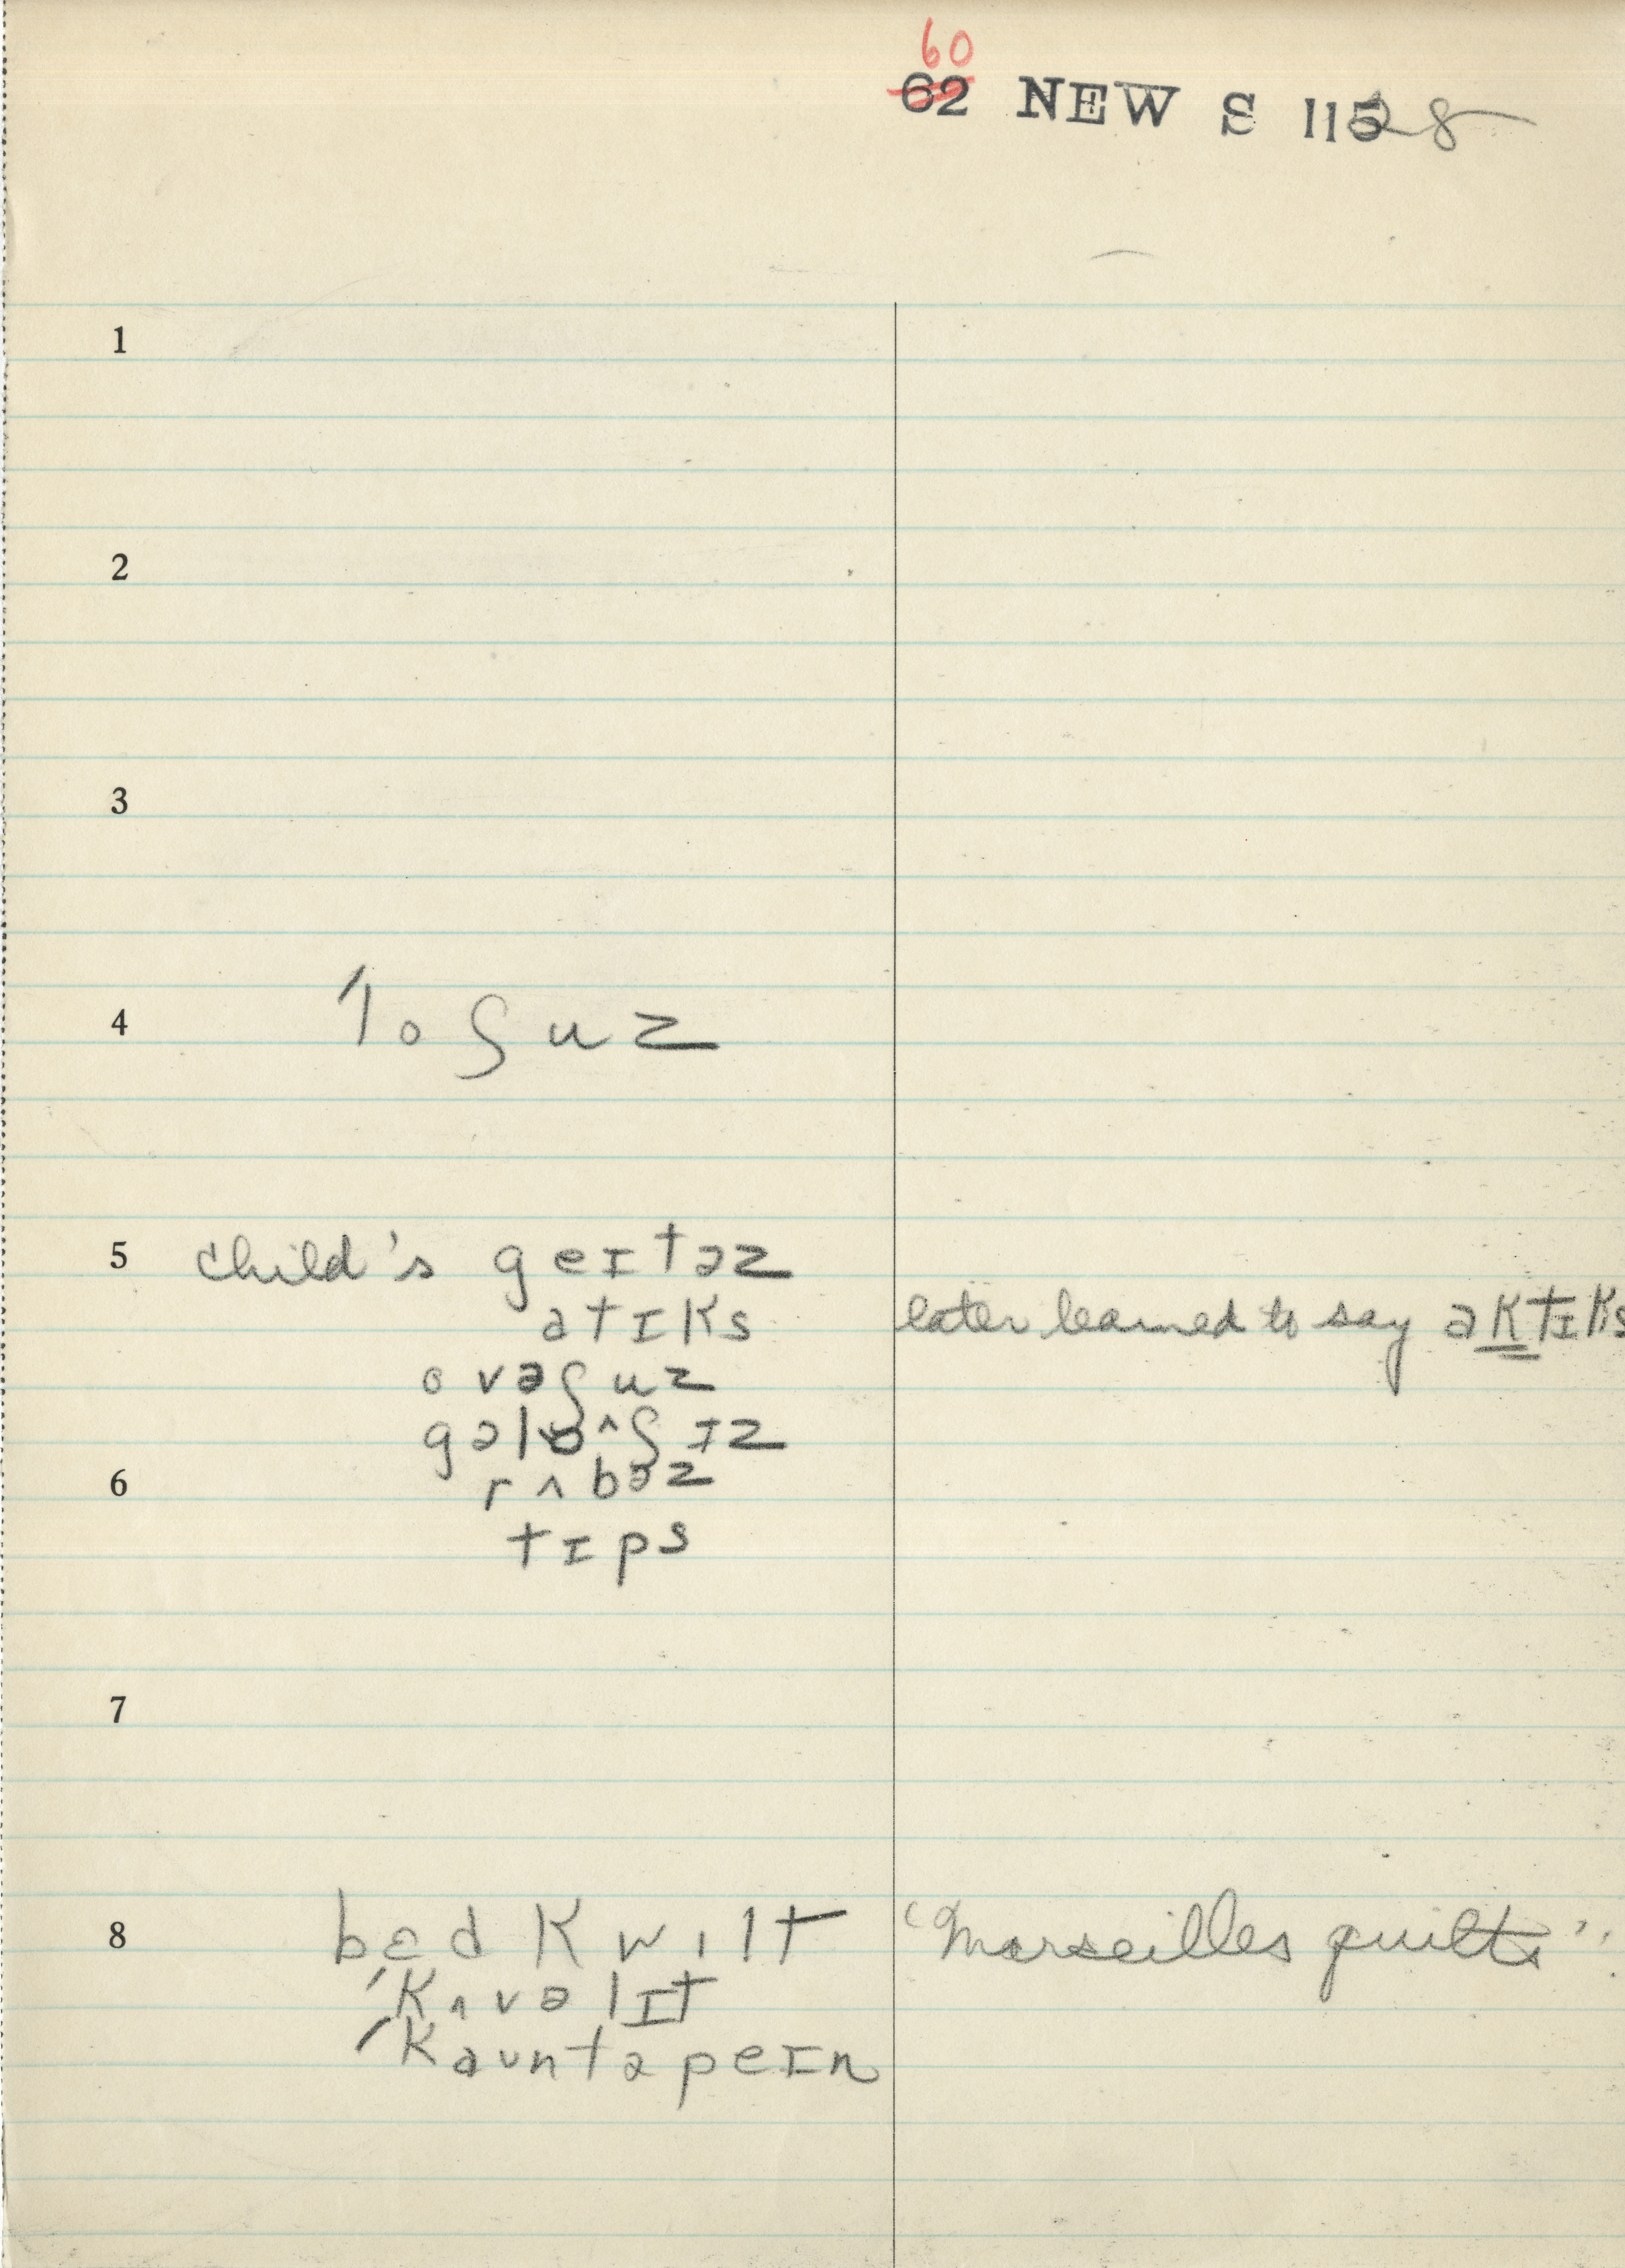 60
62 NEW S 11528
1
2
3
4 ˈloʃuz
5 child's geɪtəz
ətɪks later learned to say əktɪks
ovəʃuz
gəlɔʃɪz
6 rʌbəz
tɪps
7
8 bɛd kwɪlt "Marseilles quilts"
ˈkʌvəlɪt
ˈkauntəpeɪn